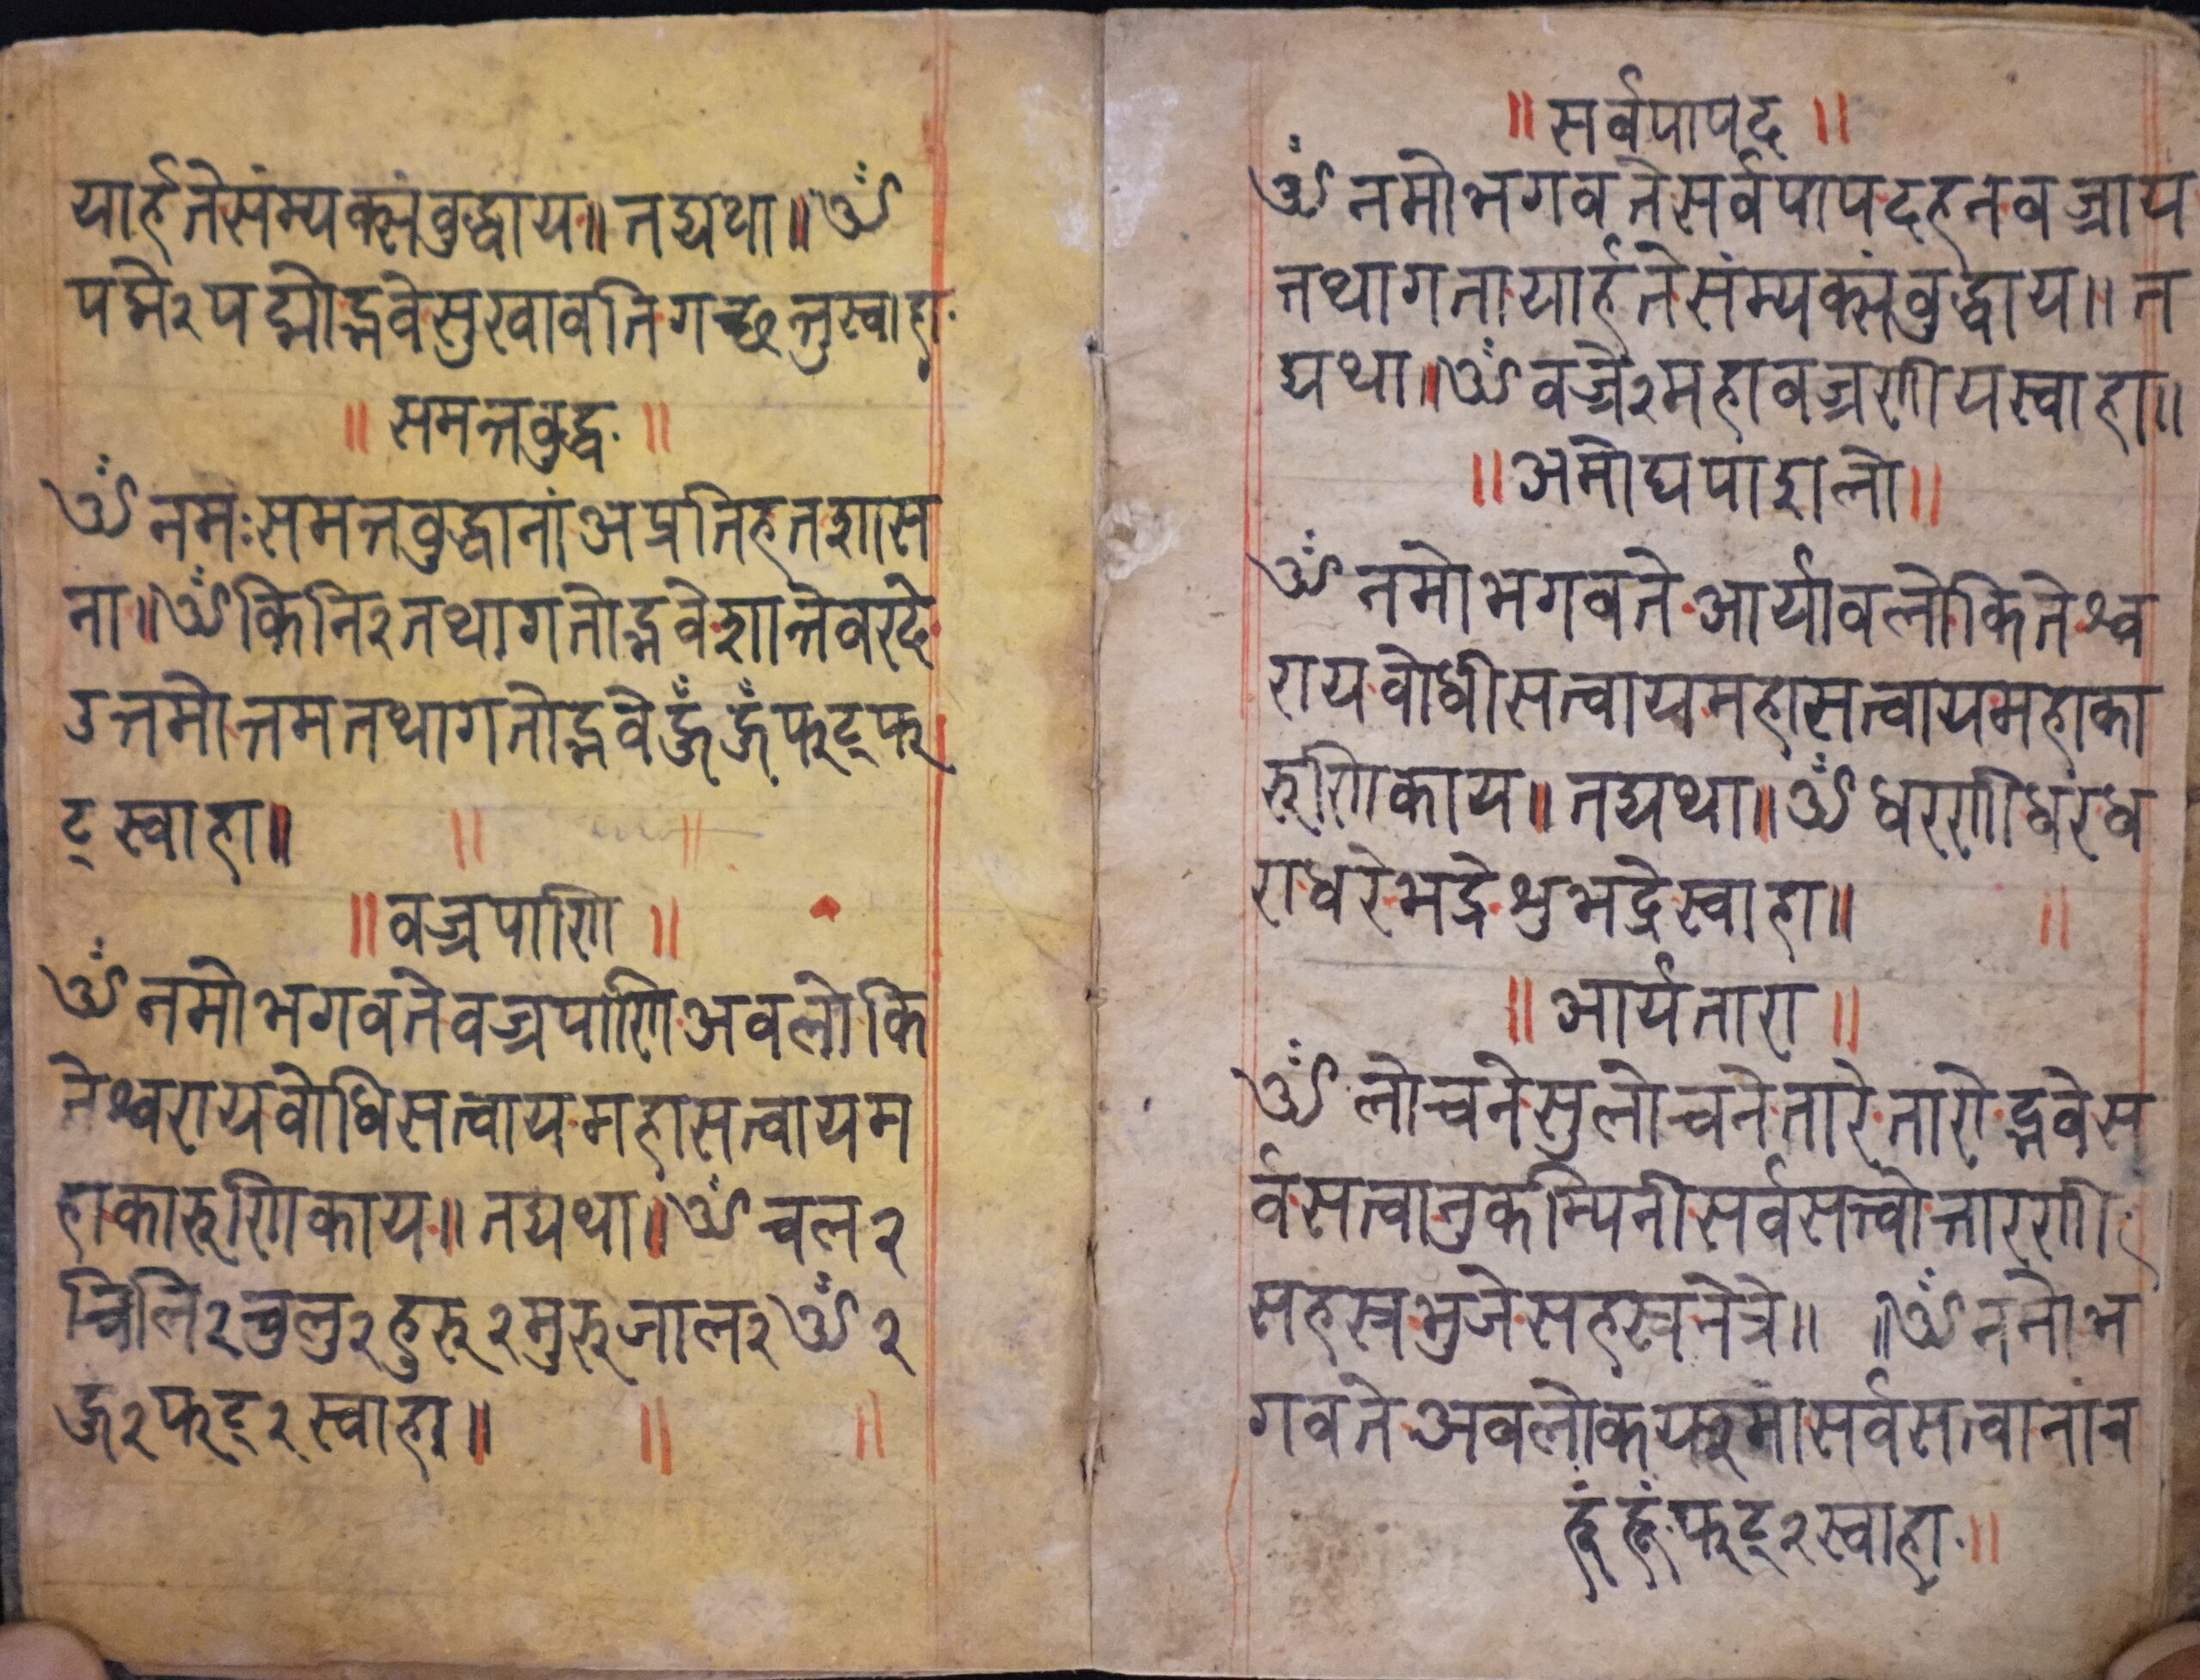 यार्हतेसंम्यक्संवुद्धाय॥तद्यथा॥ॐ
पद्मे२पद्मोद्भवेसुखावतिगच्छन्तुस्वाहा
॥समन्तवुद्ध॥
ॐनमःसमन्तवुद्धानांअप्रतिहतशास
ना॥ॐकिनि२तथागतोद्भवेशान्तेवरदे
उत्तमोत्तमतथागतोद्भवेहूँहूँफट्फ
ट्स्वाहा॥
॥वज्रपाणि॥
ॐनमोभगवतेवज्रपाणिअवलोकि
तेश्वरायवोधिसत्वायमहासत्वायम
हाकारुणिकाय॥तद्यथा॥ॐचल२
चिलि२चुलु२हुरु२मुरुजाल२ॐ२
हूँ२फट्२स्वाहा॥
॥सर्वपापद॥
ॐनमोभगवतेसर्वपापदहनवज्राय
तथागतायार्हतेसंम्यक्संवुद्धाय॥त
द्यथा॥ॐवज्रे२महावज्रणीयस्वाहा॥
॥अमोघपाशलो॥
ॐनमोभगवतेआर्यावलोकितेश्व
रायवोधीसत्वायमहासत्वायमहाका
रुणिकाय॥तद्यथा॥ॐधरणीधरंध
राधरेभद्रेशुभद्रेस्वाहा॥
॥आर्यतारा॥
ॐलोचनेसुलोचनेतारेतारोद्भवेस
र्वसत्वानुकम्पिनीसर्वसत्त्वोत्तारणी
सहस्रभुजेसहस्रनेत्रे॥॥ॐनमोभ
गवतेअवलोकयरुमांसर्वसत्वानांच
हूंहूंफट्२स्वाहा॥